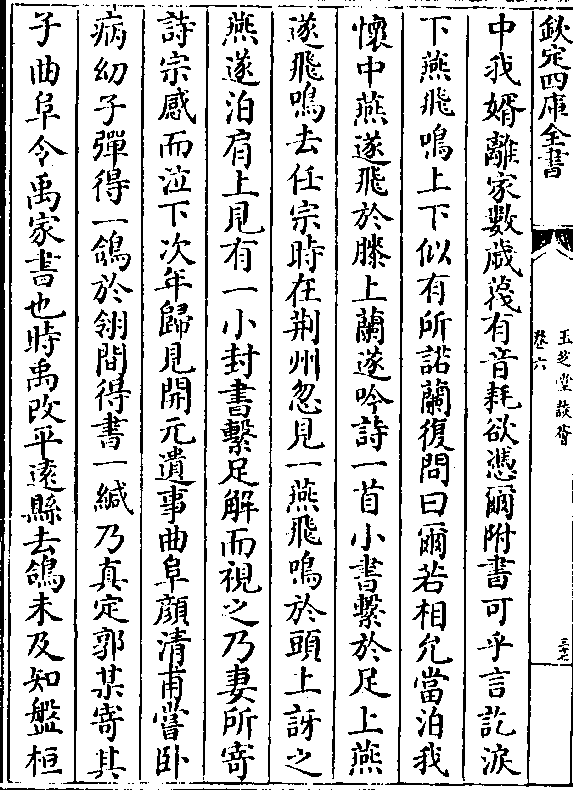 欽定四庫全書
玉芝堂談薈
卷六
三十七
中我婿離家數歲蔑有音耗欲憑爾附書可乎言訖淚
下燕飛鳴上下似有所諾蘭復問曰爾若相允當泊我
懷中燕遂飛於膝上蘭遂吟詩一首小書繫於足上燕
遂飛鳴去任宗時在荆州忽見一燕飛鳴於頭上訝之
燕遂泊肩上見有一小封書繫足解而視之乃妻所寄
詩宗感而泣下次年歸見開元遺事曲阜顔清甫嘗卧
病幼子彈得一鴿於翎間得書一緘乃真定郭某寄其
子曲阜令禹家書也時禹改平遠縣去鴿未及知盤桓